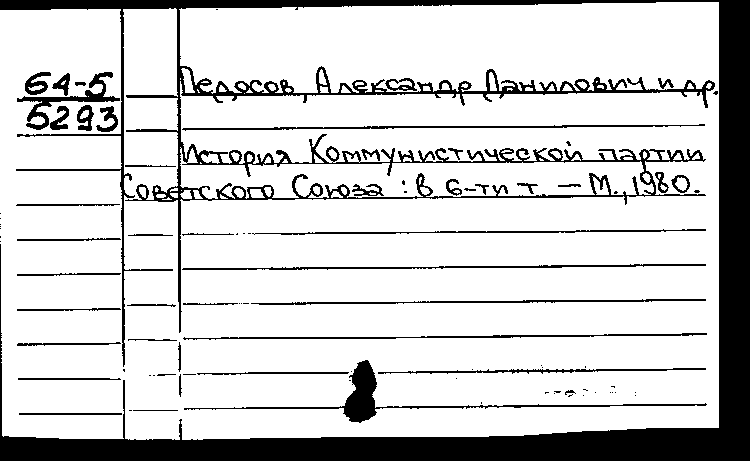 64-5
5293
Педосов, Александр Данилович и др.
История Коммунистической партии
Советского Союза : в 6-ти т. — М., 1980.